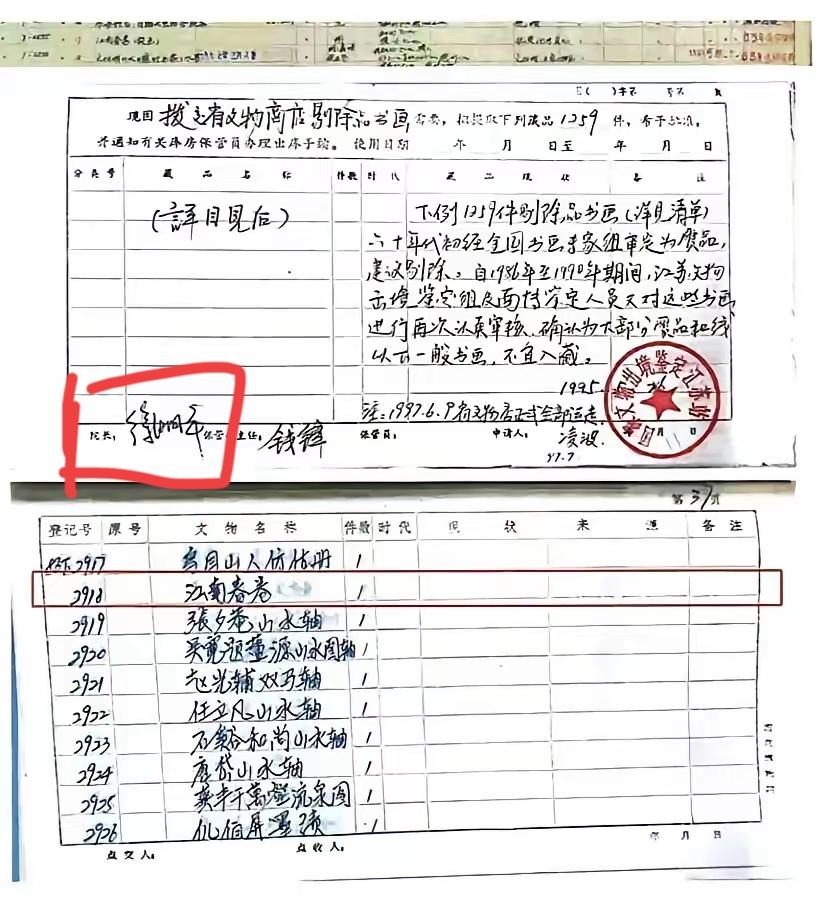 现因 拨交省文物商店剔除品书画 需要,拟提取下列藏品1259件,希予批准,
并通知有关库房保管员办理出库手续。 使用日期 年 月 日至 年 月 日
分类号 藏品名称 件数 时代 藏品现状 备注
(詳目見后)
下例1259件剔除品书画(详见清单)
六十年代初经全国书画专家组审定为赝品,
建议剔除。自1986年至1990年期间,江苏文物
出境鉴定组及面持鉴定人员又对这些书画
进行再次认真审核、确认为大部分赝品和线
以下一般书画,不宜入藏。
1995.
注:1997.6.9省文物店正式全部运走
院长: 徐湖平 保管部主任: 钱锋 保管员: 申请人: 凌波
97.7
国家文物出境鉴定江苏站
第37页
登记号 原号 文物名称 件数 时代 现状 来源 备注
2917 乌目山人仿古册 1
2918 江南春卷 1
2919 張夕菴山水轴 1
2920 吴寬题董源山水图轴 1
2921 赵光辅双马轴 1
2922 任立凡山水轴 1
2923 石谿和尚山水轴 1
2924 唐岱山水轴 1
2925 奚丰千萬壑流泉图 1
2926 仇伯屏墨瀆 1
年 月 日
点交人: 点收人: